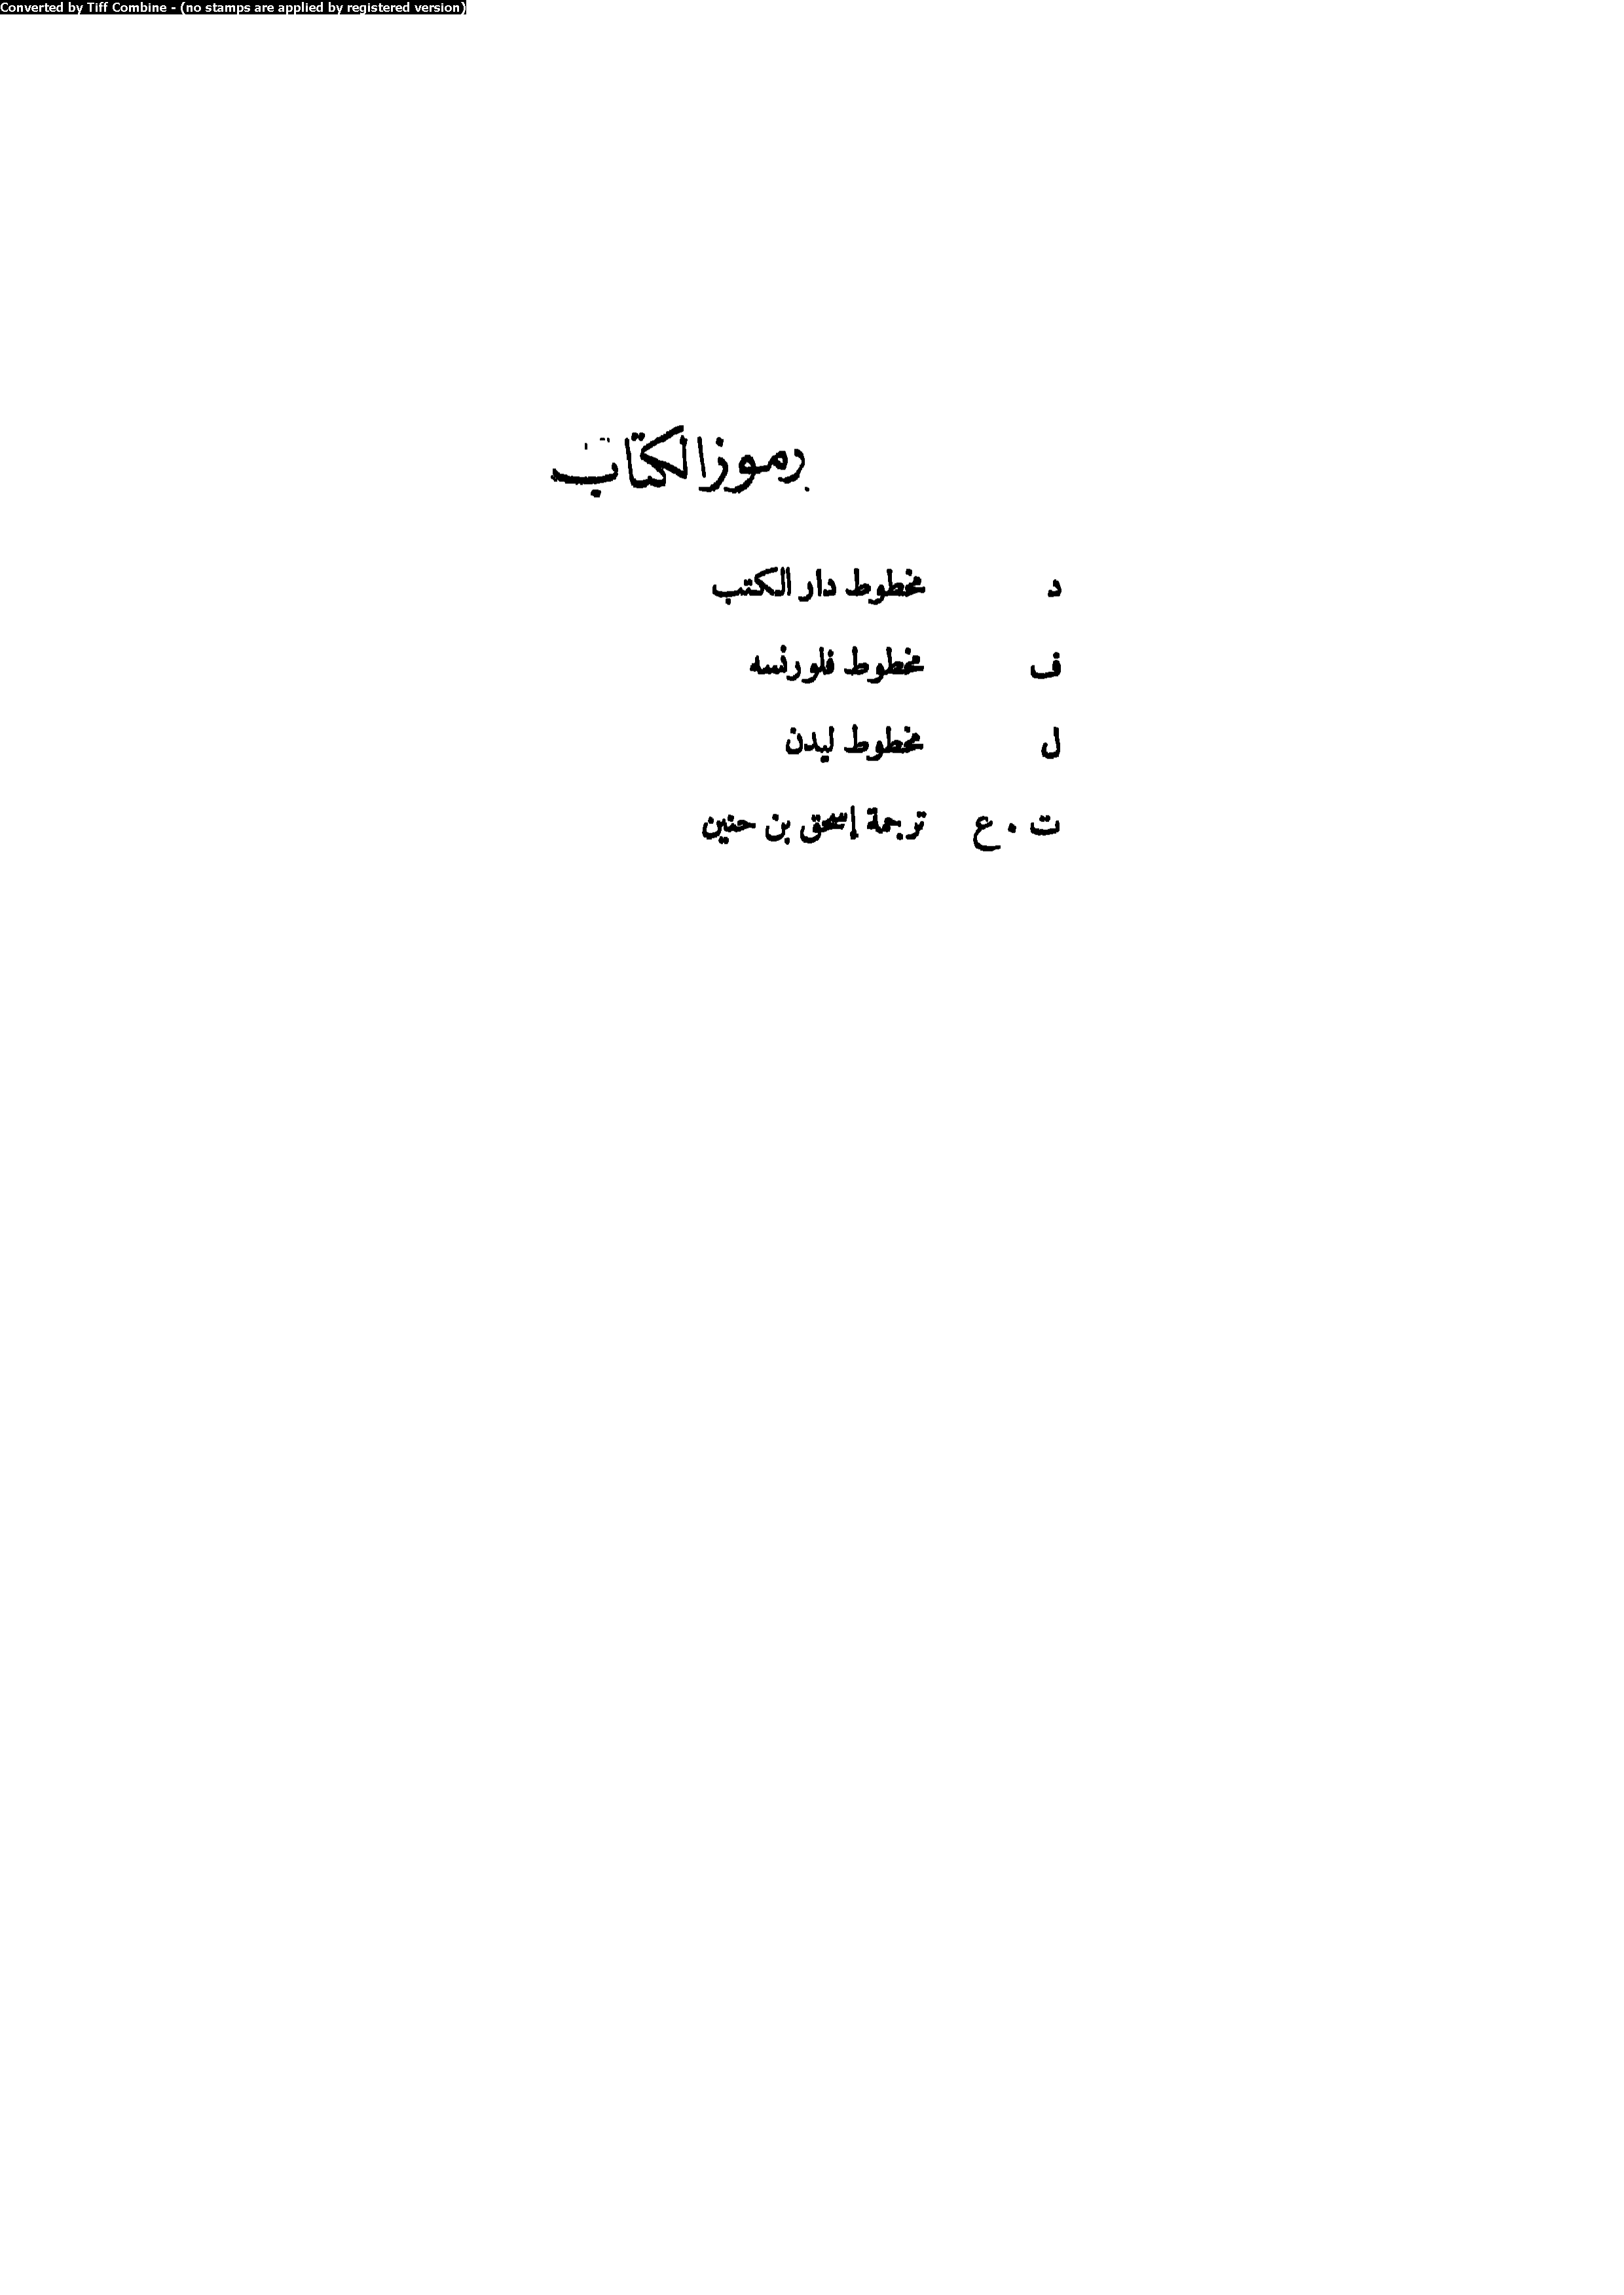 Converted by Tiff Combine - (no stamps are applied by registered version)
رموز الكتاب
د مخطوط دار الكتب
ف مخطوط فلورنسه
ل مخطوط ليدن
ت . ع ترجمة إسحق بن حنين